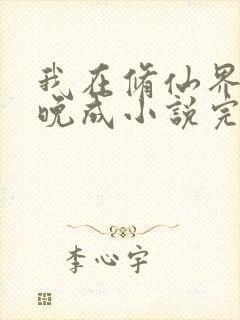 我在脩仙界
晚成小説完
李心宇